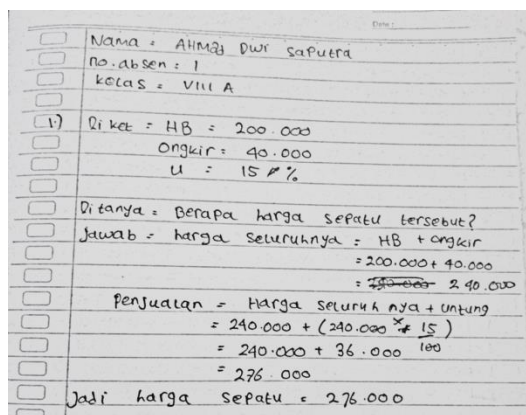 Date:
Nama : AHMad Dwi Saputra
no. absen : 1
Kelas : VIII A
1.) Diket : HB = 200.000
Ongkir : 40.000
U : 15 %
Ditanya : Berapa harga sepatu tersebut?
Jawab : harga seluruhnya = HB + ongkir
= 200.000 + 40.000
= 240.000
Penjualan = Harga seluruhnya + untung
= 240.000 + (240.000 × 15/100)
= 240.000 + 36.000
= 276.000
Jadi harga sepatu = 276.000